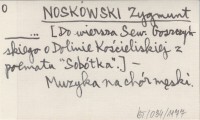 0
NOSKOWSKI Zygmunt
... [Do wiersza Sew. Goszczyń-
skiego o Dolinie Kościeliskiej z
poematu "Sobótka".] –
Muzyka na chór męski.